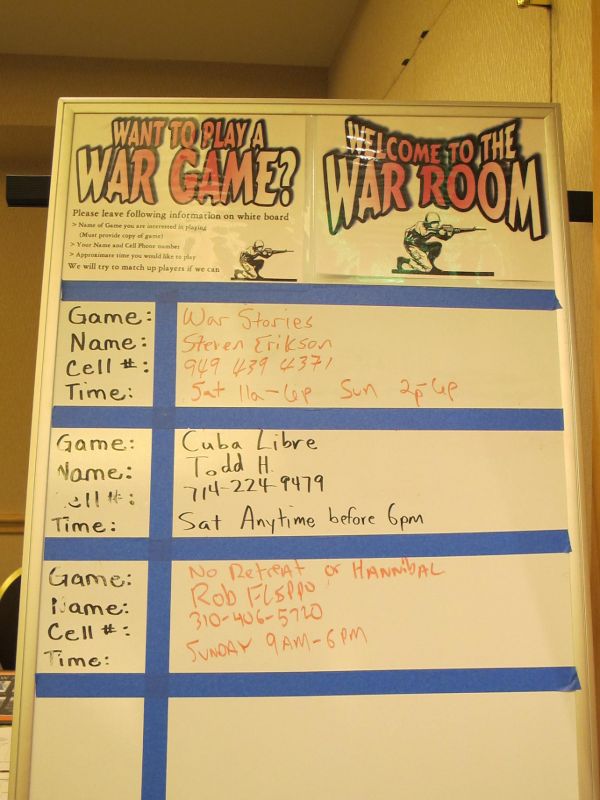 WANT TO PLAY A
WAR GAME?
Please leave following information on white board
> Name of Game you are interested in playing
(Must provide copy of game)
> Your Name and Cell Phone number
> Approximate time you would like to play
We will try to match up players if we can
WELCOME TO THE
WAR ROOM
Game: War Stories
Name: Steven Erikson
Cell #: 949 439 4371
Time: Sat 11a-6p Sun 2p-6p
Game: Cuba Libre
Name: Todd H.
Cell #: 714-224-9479
Time: Sat Anytime before 6pm
Game: No Retreat or HANNIBAL
Name: Rob
Cell #: 310-406-5720
Time: SUNDAY 9AM-6PM